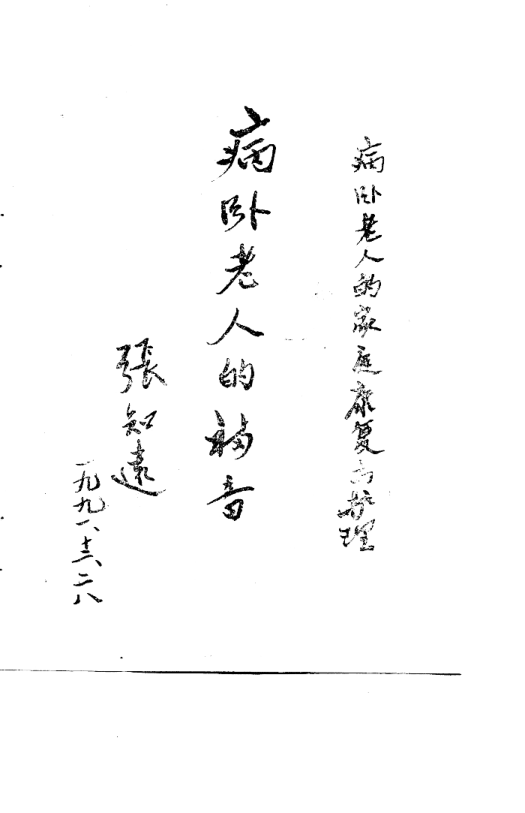 病卧老人的家庭康复与护理
病卧老人的福音
張知遠
一九九一、十二、二八